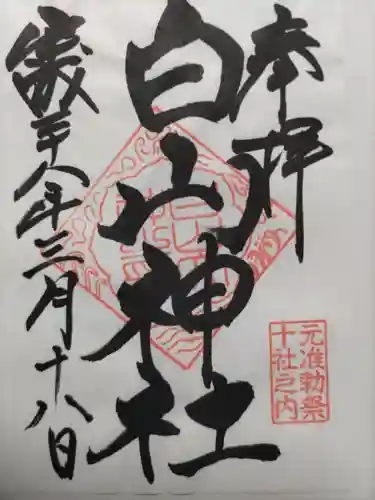 奉拝
白山神社
平成二十八年三月十八日
元准勅祭
十社之内